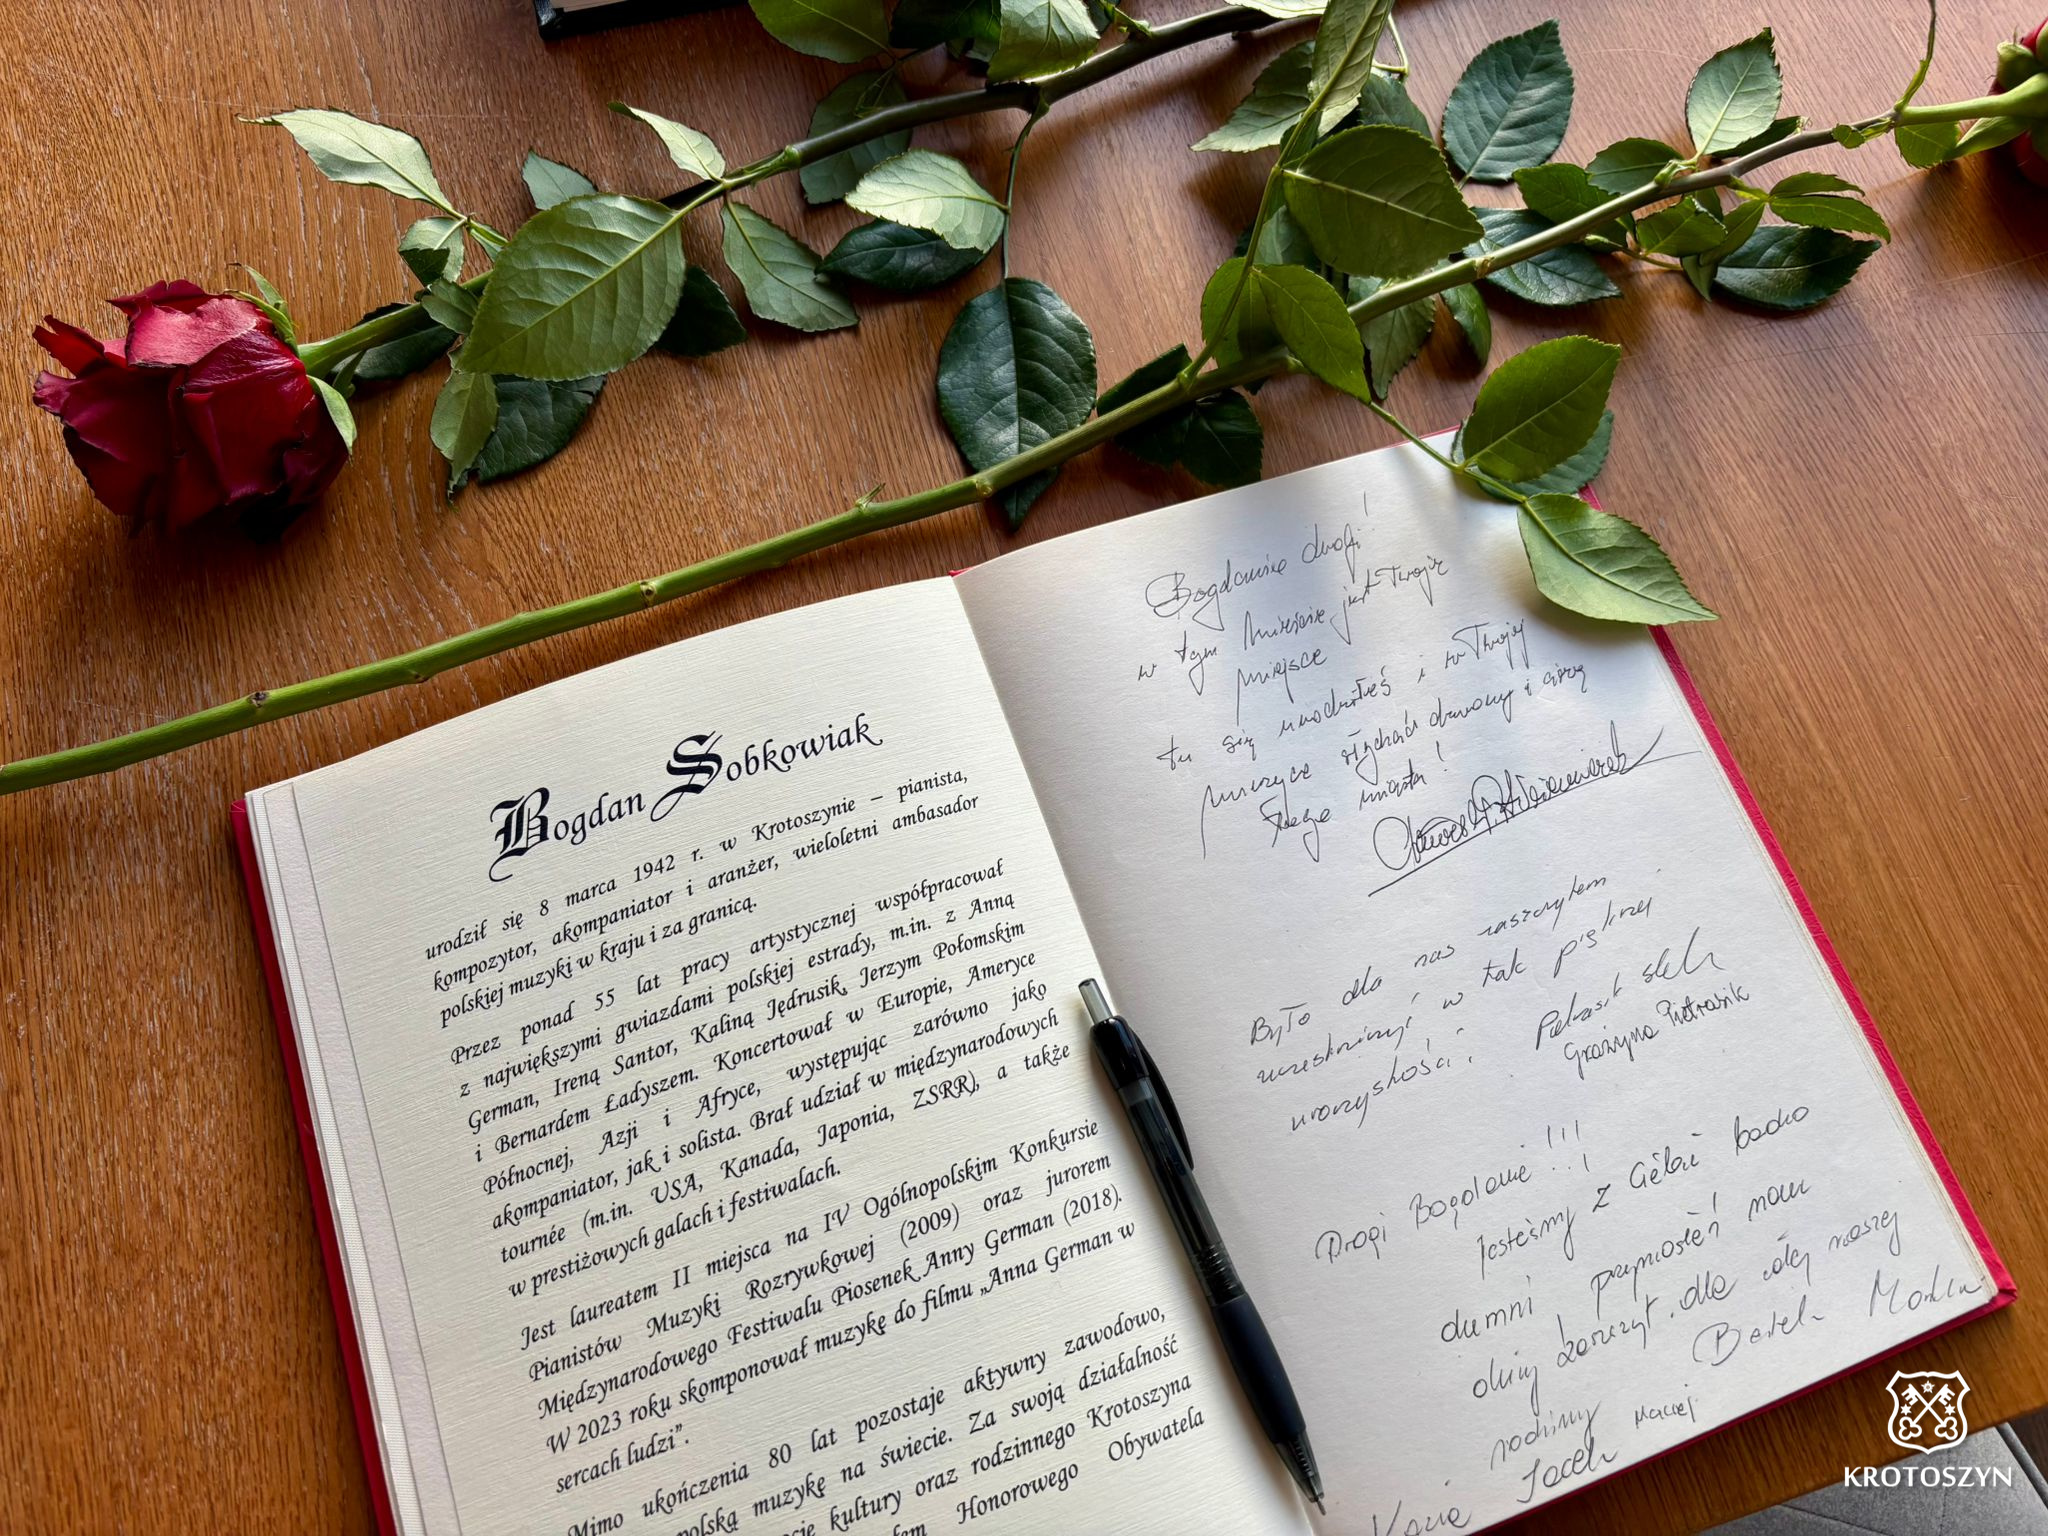 Bogdan Sobkowiak
urodził się 8 marca 1942 r. w Krotoszynie – pianista,
kompozytor, akompaniator i aranżer, wieloletni ambasador
polskiej muzyki w kraju i za granicą.
Przez ponad 55 lat pracy artystycznej współpracował
z największymi gwiazdami polskiej estrady, m.in. z Anną
German, Ireną Santor, Kaliną Jędrusik, Jerzym Połomskim
i Bernardem Ładyszem. Koncertował w Europie, Ameryce
Północnej, Azji i Afryce, występując zarówno jako
akompaniator, jak i solista. Brał udział w międzynarodowych
tournée (m.in. USA, Kanada, Japonia, ZSRR), a także
w prestiżowych galach i festiwalach.
Jest laureatem II miejsca na IV Ogólnopolskim Konkursie
Pianistów Muzyki Rozrywkowej (2009) oraz jurorem
Międzynarodowego Festiwalu Piosenek Anny German (2018).
W 2023 roku skomponował muzykę do filmu „Anna German w
sercach ludzi”.
Mimo ukończenia 80 lat pozostaje aktywny zawodowo,
polską muzykę na świecie. Za swoją działalność
kultury oraz rodzinnego Krotoszyna
Honorowego Obywatela
Bogdanie drogi!
w tym mieście jest Twoje
miejsce
tu się urodziłeś i w Twojej
muzyce słychać
tego miasta!
Było dla nas zaszczytem
uczestniczyć w tak pięknej
uroczystości.
Grażyna Pietrasik
Drogi Bogdanie!!!
Jesteśmy z Ciebie bardzo
dumni przyniosłeś nam
duży zaszczyt dla całej naszej
rodziny
Jacek Maciej
KROTOSZYN